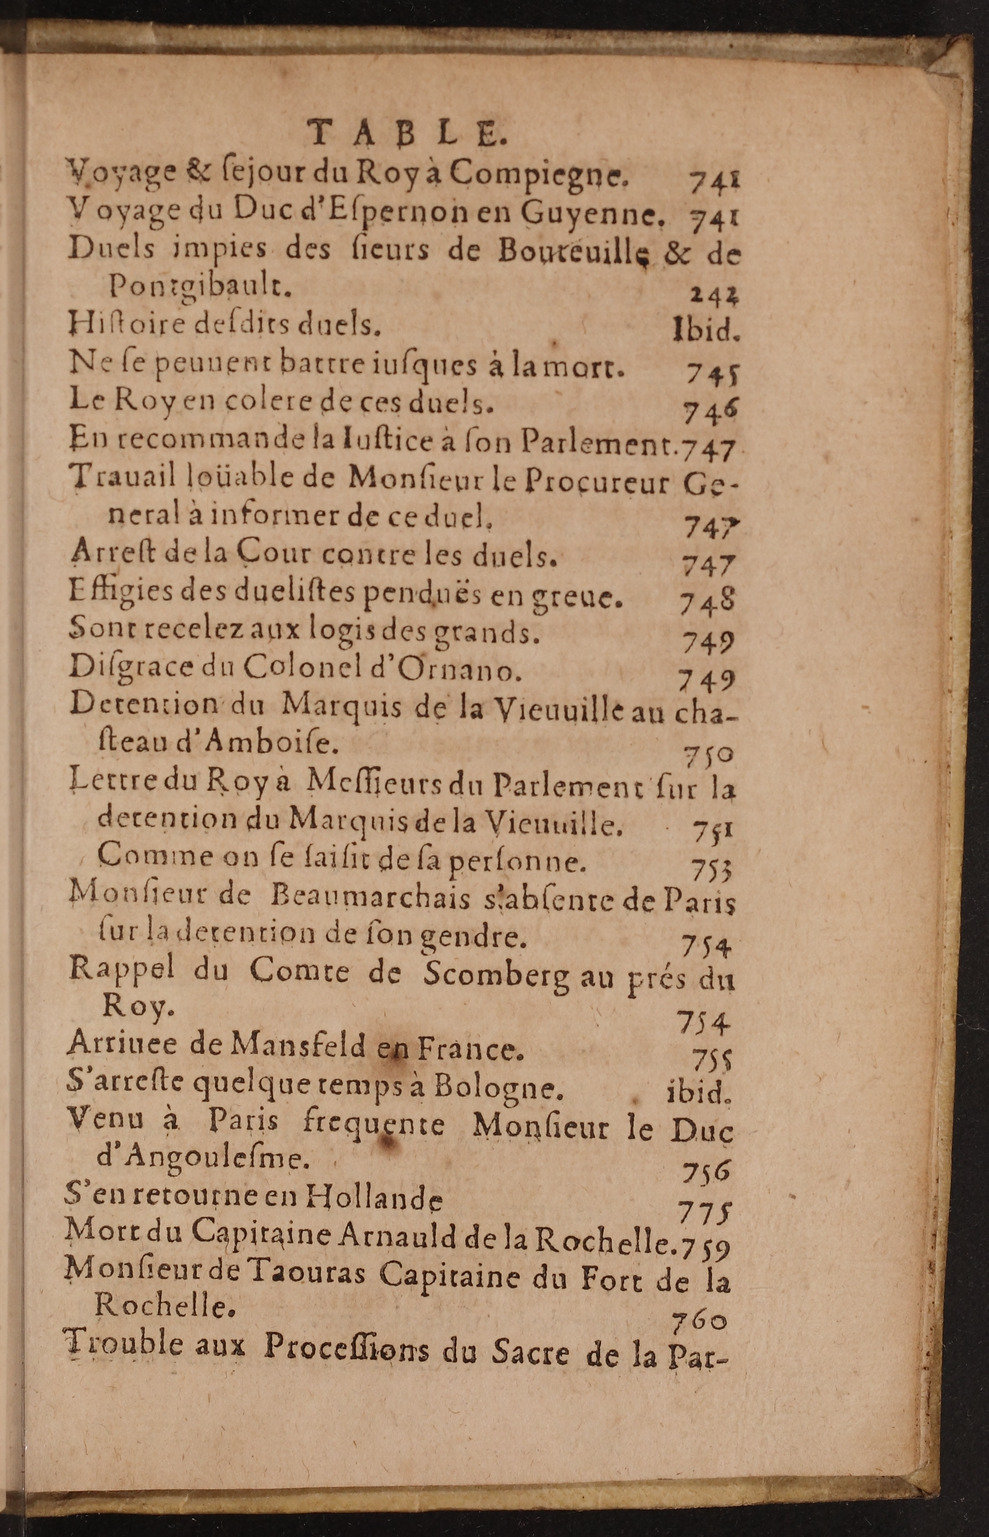 TABLE.
Voyage & ſejour du Roy à Compiegne. 741
Voyage du Duc d'Eſpernon en Guyenne. 741
Duels impies des ſieurs de Bouteuille & de
Pontgibault. 242
Hiſtoire deſdits duels. Ibid.
Ne ſe peuuent battre iuſques à la mort. 745
Le Roy en colere de ces duels. 746
En recommande la Iuſtice à ſon Parlement. 747
Trauail loüable de Monſieur le Procureur Ge-
neral à informer de ce duel. 747
Arreſt de la Cour contre les duels. 747
Effigies des dueliſtes penduës en greue. 748
Sont recelez aux logis des grands. 749
Diſgrace du Colonel d'Ornano. 749
Detention du Marquis de la Vieuuille au cha-
ſteau d'Amboiſe. 750
Lettre du Roy à Meſſieurs du Parlement ſur la
detention du Marquis de la Vieuuille. 751
Comme on ſe ſaiſit de ſa perſonne. 753
Monſieur de Beaumarchais s'abſente de Paris
ſur la detention de ſon gendre. 754
Rappel du Comte de Scomberg au prés du
Roy. 754
Arriuee de Mansfeld en France. 755
S'arreſte quelque temps à Bologne. ibid.
Venu à Paris frequente Monſieur le Duc
d'Angouleſme. 756
S'en retourne en Hollande 775
Mort du Capitaine Arnauld de la Rochelle. 759
Monſieur de Taouras Capitaine du Fort de la
Rochelle. 760
Trouble aux Proceſſions du Sacre de la Par-